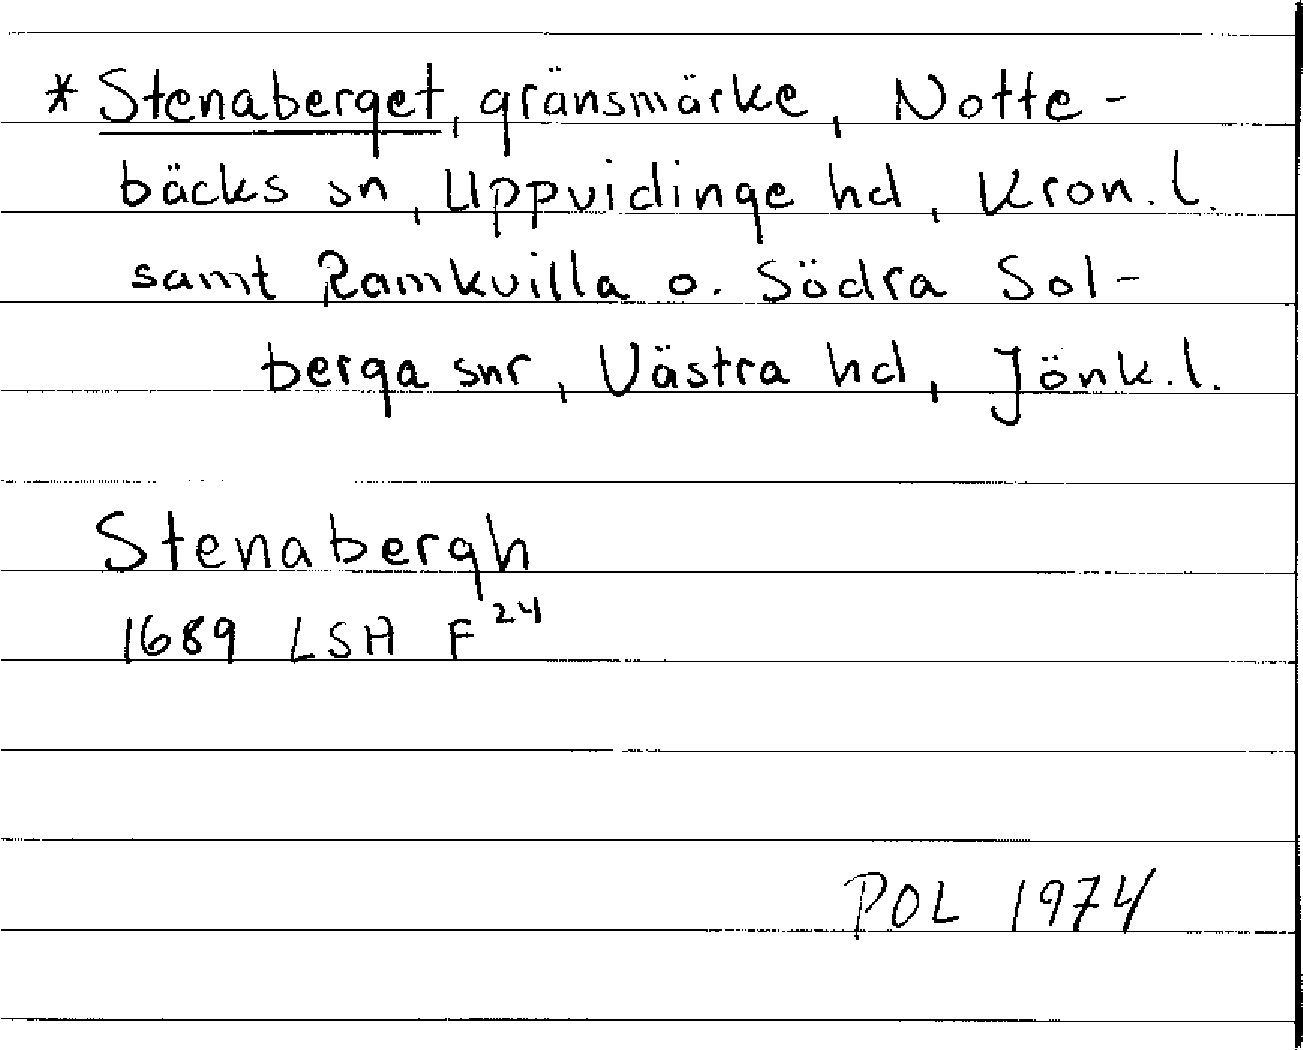 * Stenaberget, gränsmärke, Notte-
bäcks sn, Uppvidinge hd, Kron. l.
samt Ramkvilla o. Södra Sol-
berga snr, Västra hd, Jönk. l.
Stenabergh
1689 LSA F²⁴
POL 1974